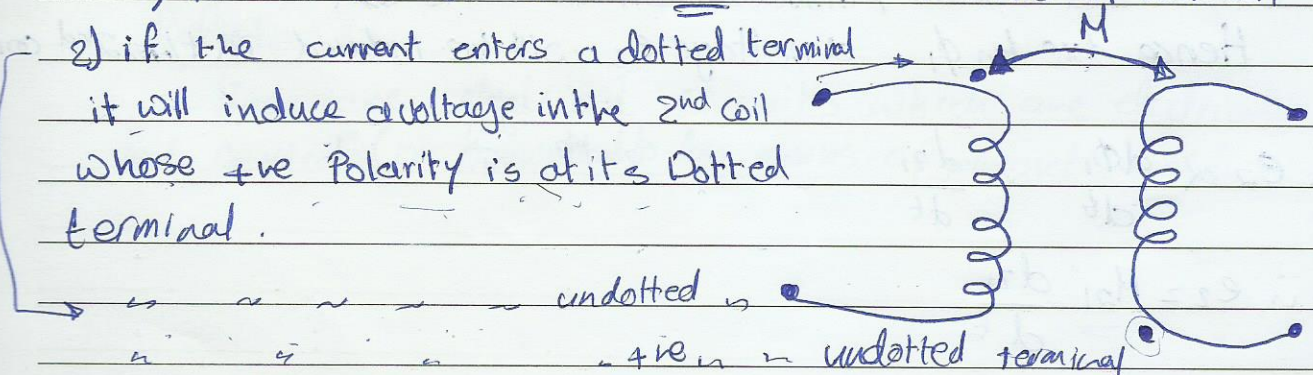 2) if the current enters a dotted terminal
M
it will induce a voltage in the 2nd coil
whose +ve Polarity is at its Dotted
terminal.
〃 〃 〃 〃 〃 undotted 〃
〃 〃 〃 〃 +ve 〃 〃 undotted terminal